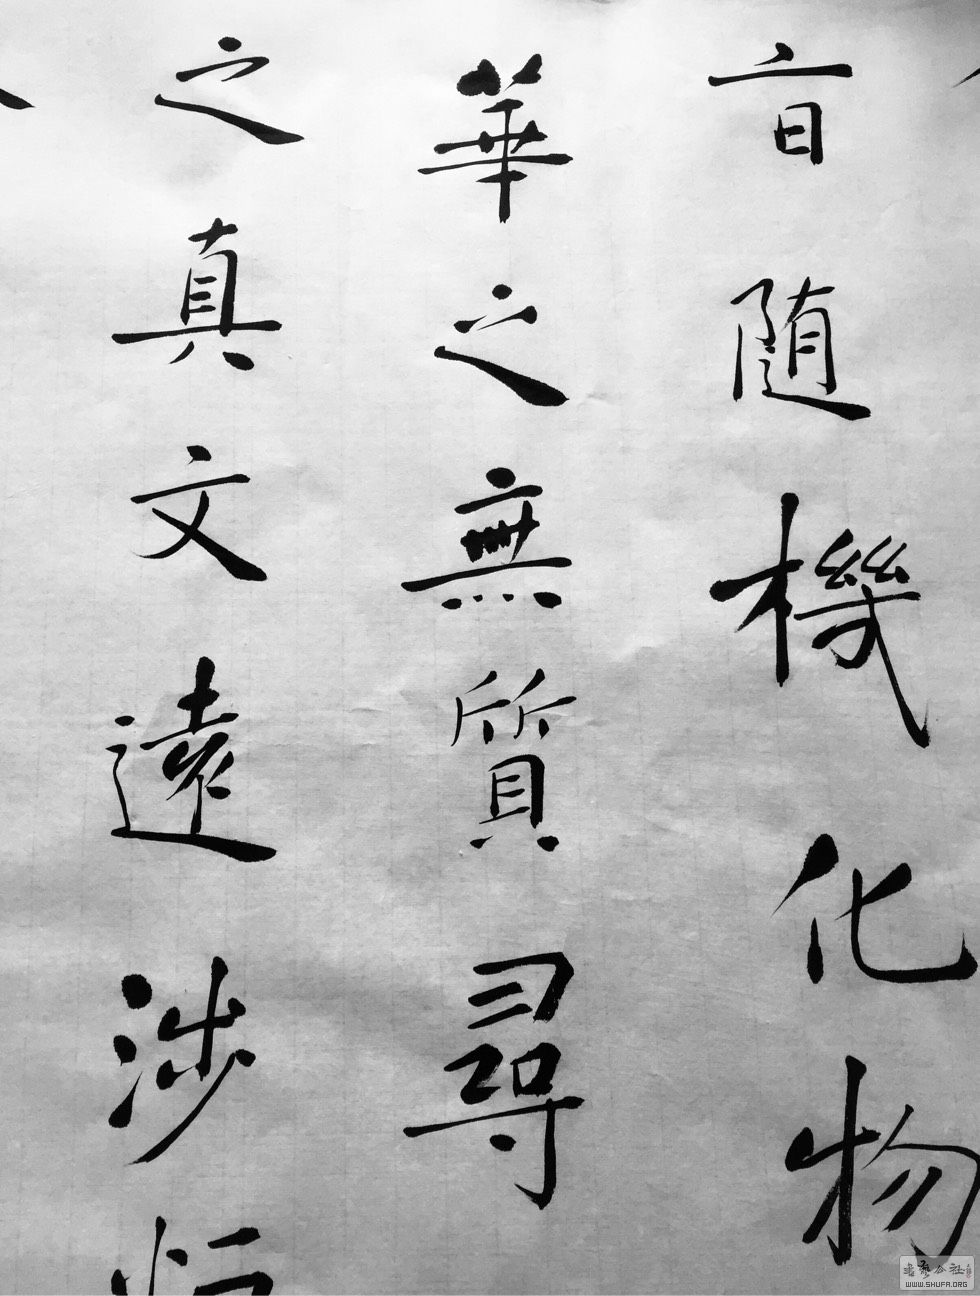 旨随機化物
華之無質尋
之真文遠涉恒
書藝公社
WWW.SHUFA.ORG